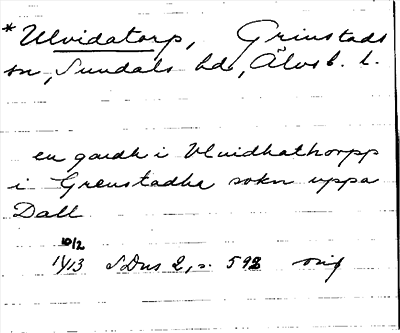 *Ulvidatorp, Grinstads
sn, Sundals hd, Älvsb. l.
en gardh i Vluidhathorpp
i Grenstadha sokn uppa
Dall
10/2
1413 SDns 2, s. 592 orig